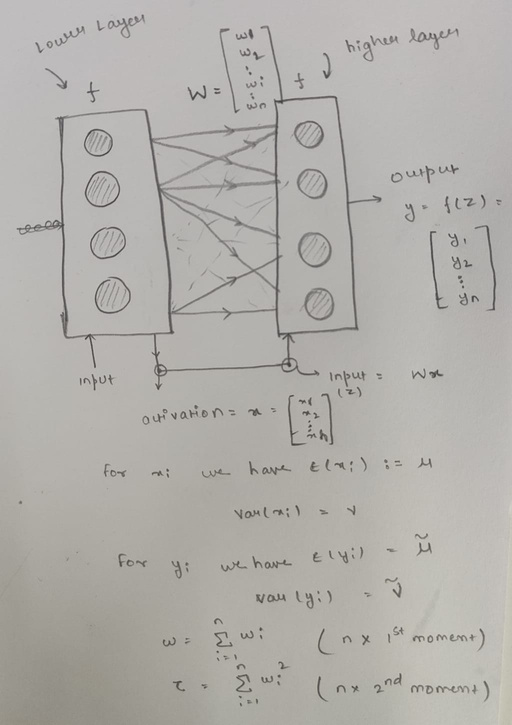 Lower Layer
higher layer
f
f
W = [ w1 w2 ⋮ wi ⋮ wn ]
output
y = f(z) =
[ y1 y2 ⋮ yn ]
input
input = Wx
(z)
activation = x = [ x1 x2 ⋮ xn ]
For xi we have E(xi) := μ
var(xi) = ν
For yi we have E(yi) = μ̃
var(yi) = ν̃
ω = Σ_{i=1}^{n} wi (n x 1st moment)
τ = Σ_{i=1}^{n} wi² (n x 2nd moment)